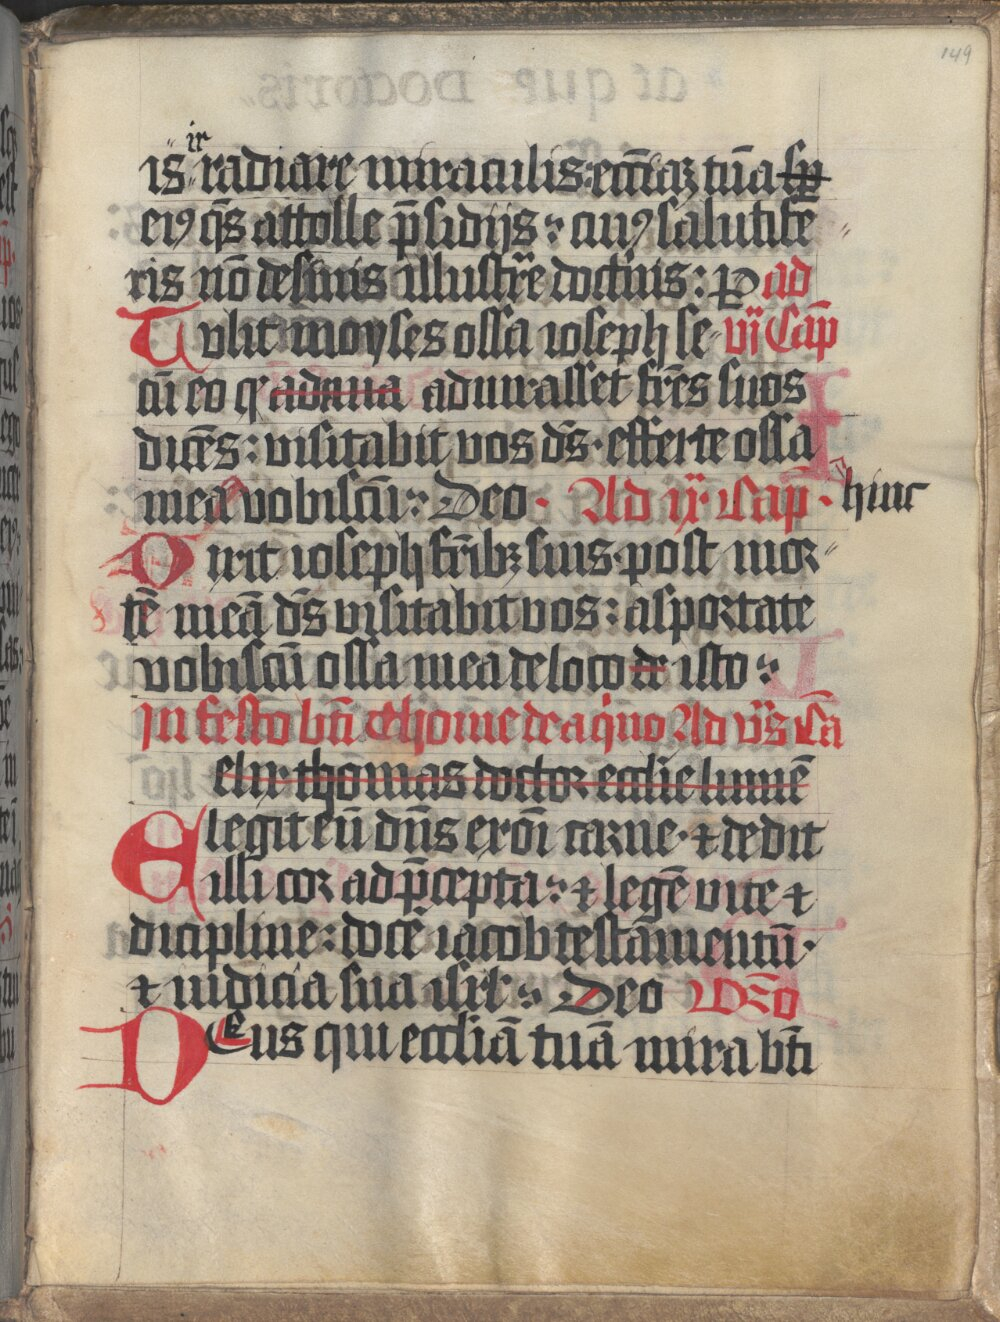 149
ir
is radiare miraculis: eccĩaʒ tuã sp̃
ei⁹ q̃s attolle p̃sidijs: cui⁹ salutife
ris nõ desinis illustrãre doctinis: P ad
Tvlit moyses ossa ioseph se vi Cap̃
cũ eo qͥ adiuua adiurasset frẽs suos
dicẽs: visitabit vos dñs · efferte ossa
mea vobiscũ: Deo · Ad ix Cap̃ · hinc
Dixit ioseph frĩbʒ suis · post mor
tẽ meã dñs visitabit vos: asportate
vobiscũ ossa mea de loco de isto:
In festo btĩ Thome de aqͥno Ad vꝰs Cã
elix thomas doctor ecclie lumẽ
Elegit eũ dñs ex oĩ carne · ⁊ dedit
illi cor ad p̃cepta: ⁊ legẽ vite ⁊
dicipline: docẽ iacob testãmentũ ·
⁊ iudicia sua isrł: Deo Oro
Deus qui eccliã tuã mira btĩ